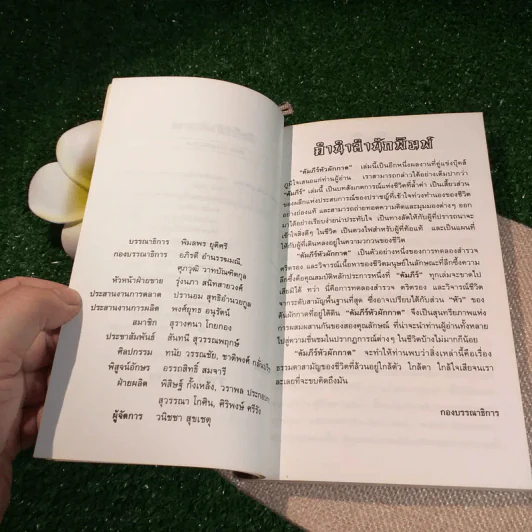 บรรณาธิการ พิมลพร ยุติศรี
กองบรรณาธิการ อภิรดี อำนรรฆมณี,
ศุภวุฒิ วาทบัณฑิตกุล
หัวหน้าฝ่ายขาย รุ่งนภา สนิทสายวงค์
ประสานงานการตลาด ปรานอม สุทธิอำนวยกูล
ประสานงานการผลิต พงศ์ยุทธ อนุรัตน์
สมาชิก สุรางคนา โกยกอง
ประชาสัมพันธ์ สินทนี สุวรรณพฤกษ์
ศิลปกรรม ทนัย วรรณชัย, ชาติพงศ์
พิสูจน์อักษร อรรถสิทธิ์ สมจารี
ฝ่ายผลิต พิสิษฐ์ กั้งเหลัง, วราพล
สุวรรณา โกศิน, ศิริพงษ์ ศรีรัง
ผู้จัดการ วนิชชา สุขเชตุ
คำนำสำนักพิมพ์
"คัมภีร์หัวผักกาด" เล่มนี้เป็นอีกหนึ่งผลงานที่คู่แข่งบุ๊คส์
ภูมิใจเสนอแก่ท่านผู้อ่าน เราสามารถกล่าวได้อย่างเต็มปากว่า
"คัมภีร์" เล่มนี้ เป็นบทสังเกตการณ์แห่งชีวิตที่ล้ำค่า เป็นเสี้ยวส่วน
ของผลึกแห่งประสบการณ์ของปราชญ์ที่เข้าใจท่วงทำนองของชีวิต
อย่างถ่องแท้ และสามารถถ่ายทอดความคิดและมุมมองต่างๆ ออก
มาได้อย่างเรียบง่ายน่าประทับใจ เป็นทางลัดให้กับผู้ที่ปรารถนาจะ
เข้าใจสิ่งดีๆ ในชีวิต เป็นดวงไฟสำหรับผู้ที่ท้อแท้ และเป็นแผนที่
ให้กับผู้เดินหลงอยู่ในความวกวนของชีวิต
"คัมภีร์หัวผักกาด" เป็นตัวอย่างหนึ่งของการทดลองสำรวจ
ตริตรอง และวิจารณ์เนื้อหาของชีวิตมนุษย์ในลักษณะที่ลึกซึ้งความ
ลึกซึ้งคือคุณสมบัติหลักประการหนึ่งที่ "คัมภีร์" ทุกเล่มจะขาดไป
เสียมิได้ ทว่า นี่คือการทดลองสำรวจ ตริตรอง และวิจารณ์ชีวิต
จากระดับสามัญพื้นฐานที่สุด ซึ่งอาจเปรียบได้กับส่วน "หัว" ของ
ต้นผักกาดที่อยู่ใต้ดิน "คัมภีร์หัวผักกาด" จึงเป็นสุนทรียภาพแห่ง
การผสมผสานกันของสองคุณลักษณ์ ที่น่าจะนำท่านผู้อ่านทั้งหลาย
ไปสู่ความชื่นชมในปรากฏการณ์ต่างๆ ในชีวิตบ้างไม่มากก็น้อย
"คัมภีร์หัวผักกาด" จะทำให้ท่านพบว่าสิ่งเหล่านี้คือเรื่อง
ธรรมดาสามัญของชีวิตที่ล้วนอยู่ใกล้ตัว ใกล้ตา ใกล้ใจเสียจนเรา
ละเลยที่จะขบคิดถึงมัน
กองบรรณาธิการ